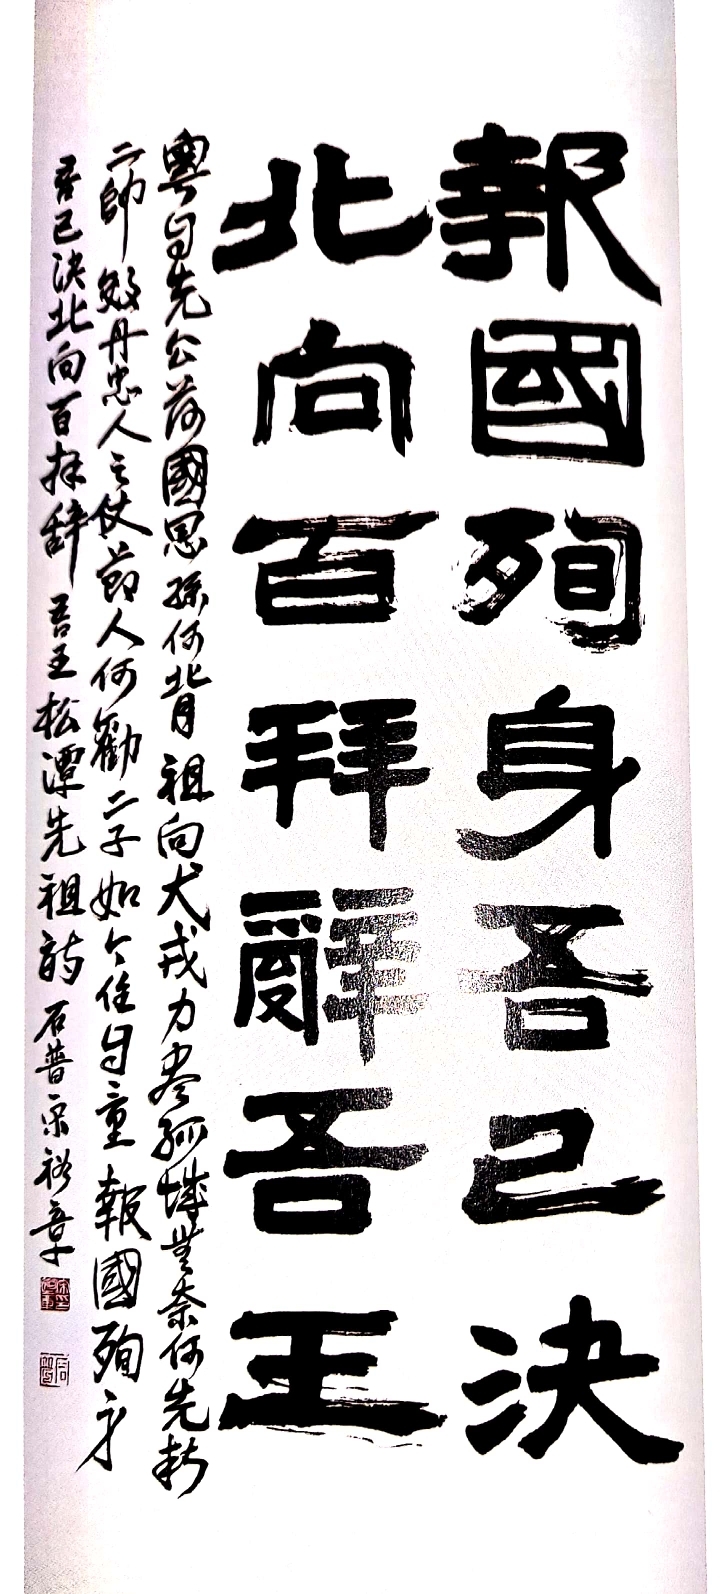 報國殉身吾已決
北向百拜辭吾王
粤自先公荷國恩孫何背祖向犬戎力盡孤城無奈何先斬
二帥效丹忠人之仗節人何勸二子如今任自童報國殉身
吾已決北向百拜辭吾王松潭先祖詩石普宋裕章